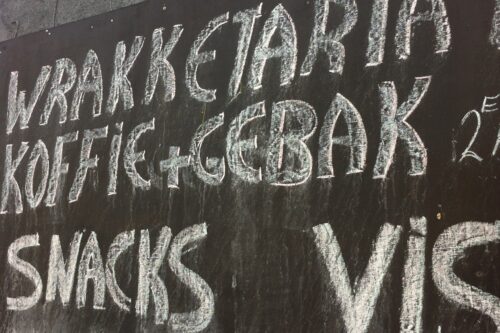 WRAKKETARIA
KOFFIE+GEBAK 2E
SNACKS VIS